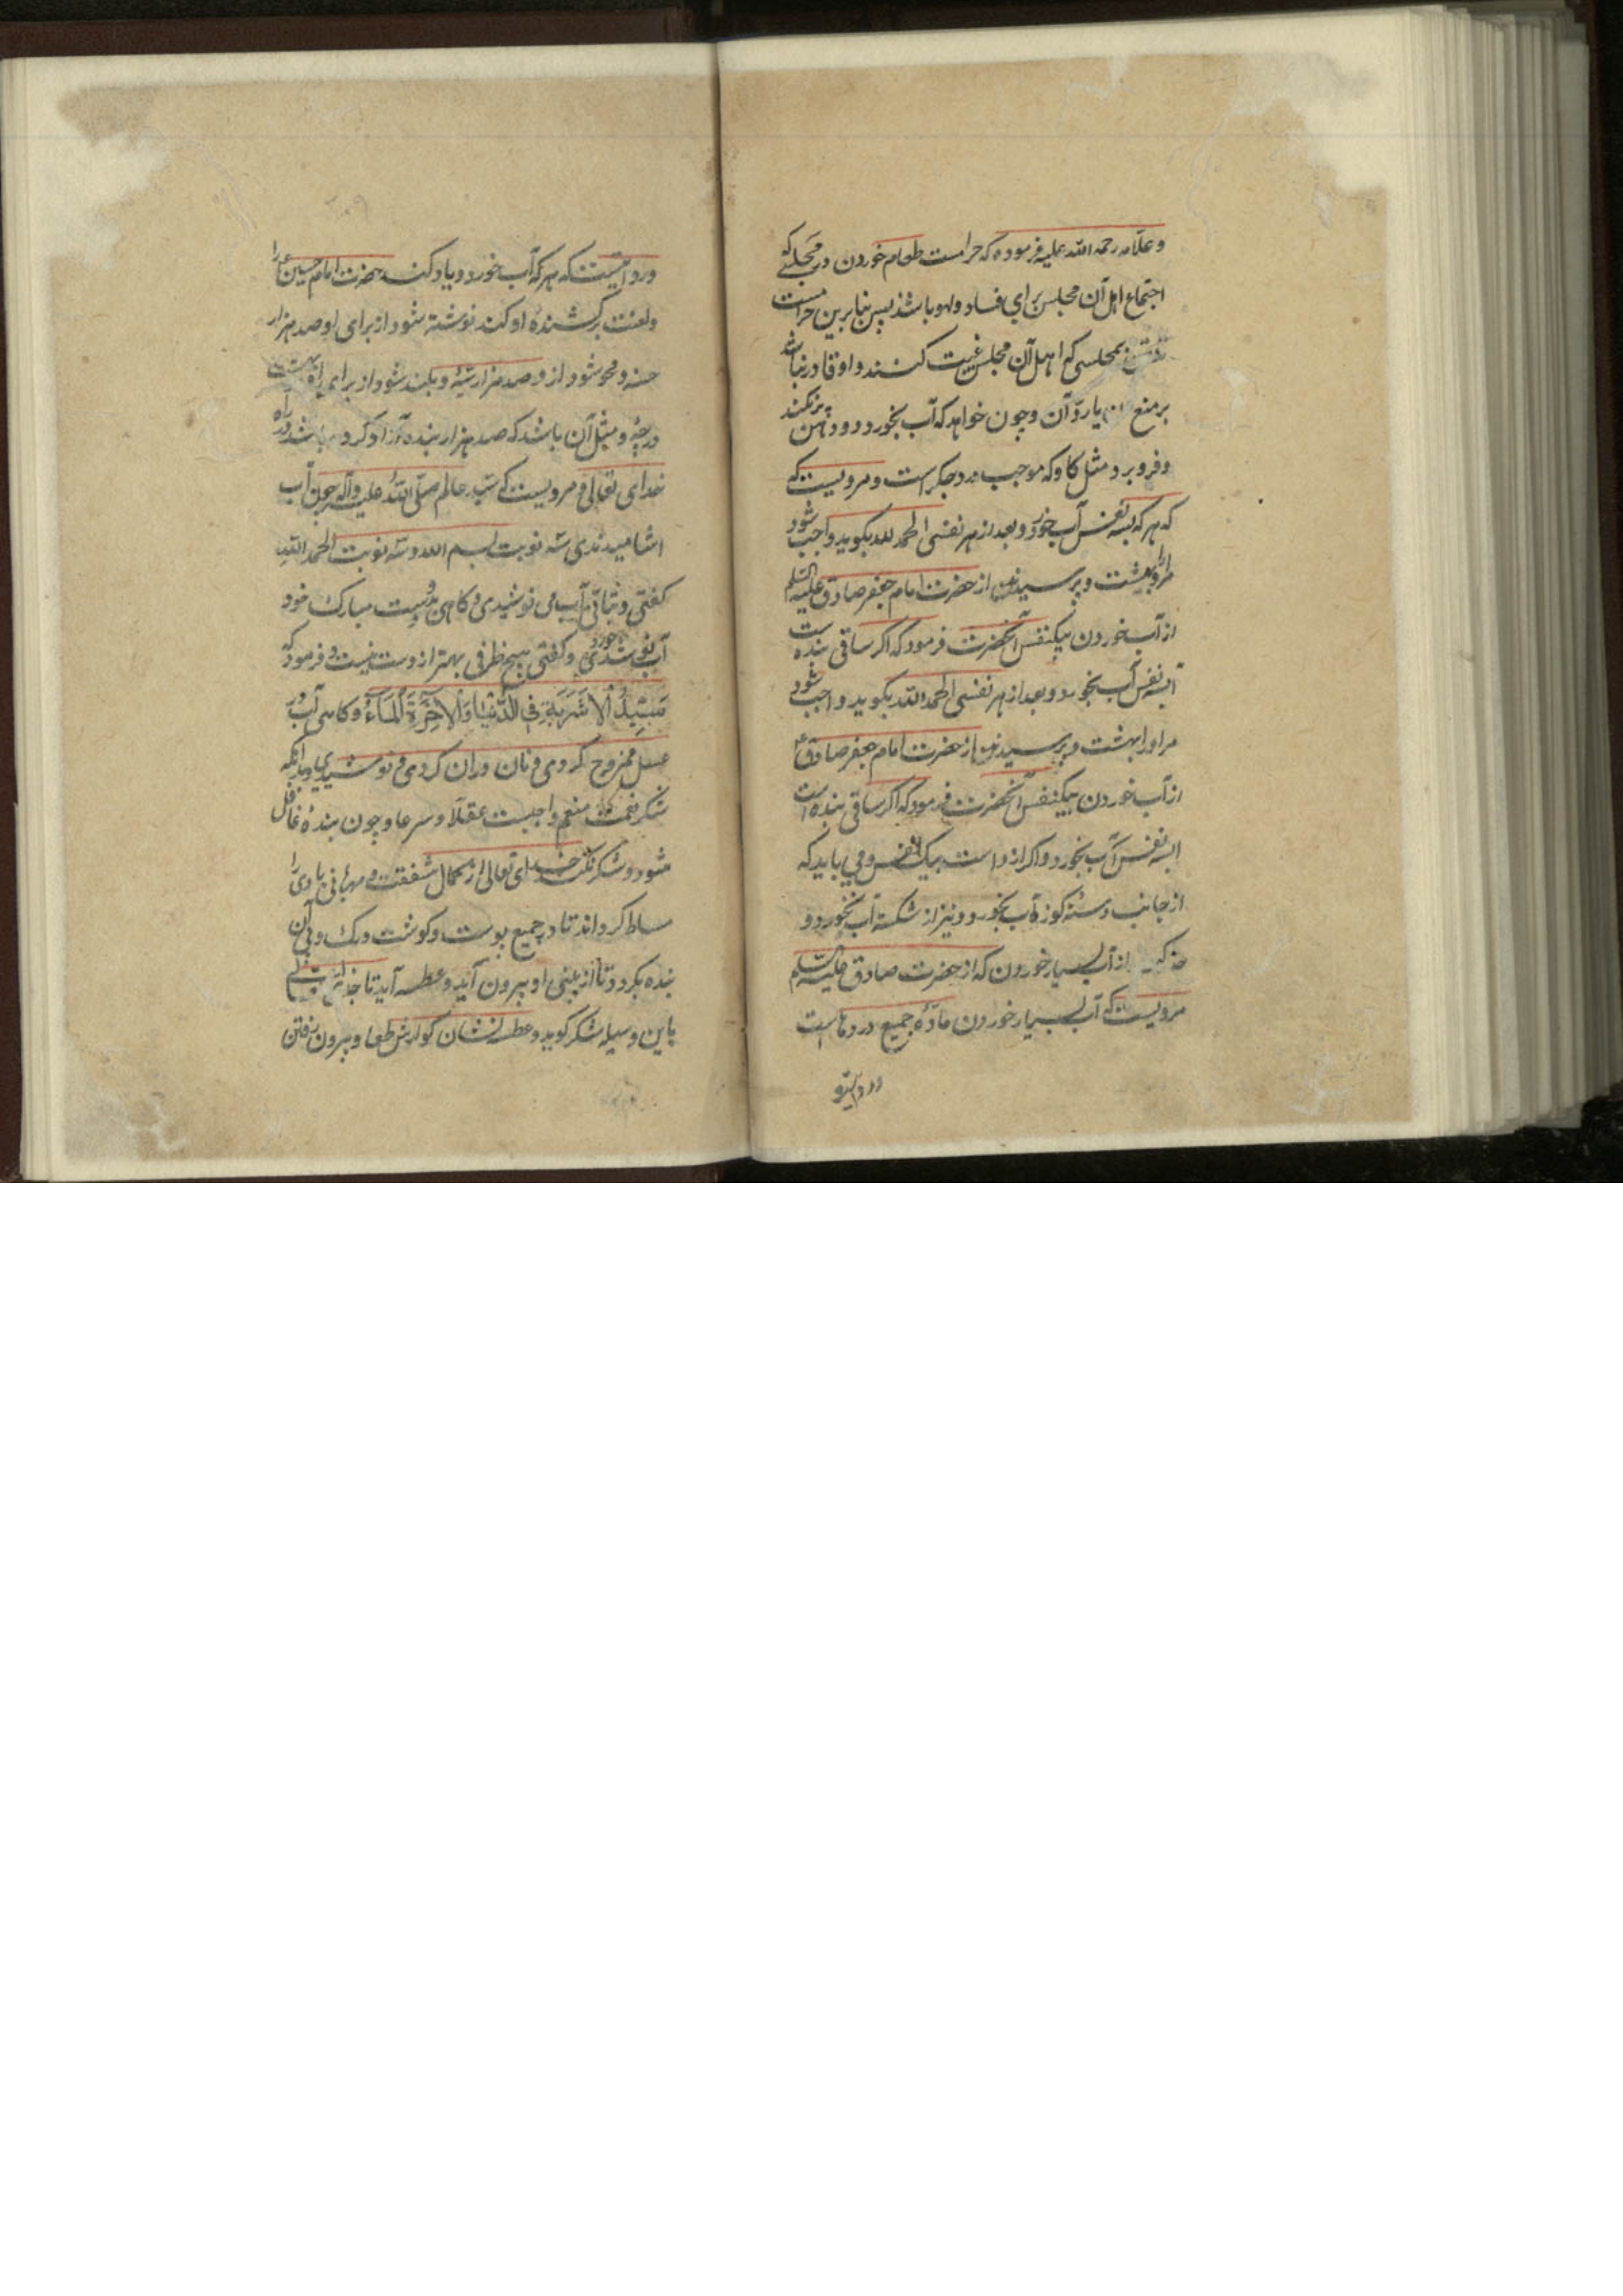 و علامه رحمه الله علیه فرموده که حرامست طعام خوردن در مجلسی که
اجتماع اهل آن مجلس برای فساد و لهو باشد پس بنابرین حرامست
بمجلسی که اهل آن مجلس غیبت کنند و او قادر نباشد
بر منع یا رد آن و چون خواهد که آب بخورد دهن پر نکند
و فرو برد مثل کاو که موجب درد جکر است و مرویست که
که هر که بسه نفس آب خورد و بعد از هر نفسی الحمد لله بکوید واجب شود
مر او را بهشت و پرسیدند از حضرت امام جعفر صادق علیه السلم
از آب خوردن بیکنفس آنحضرت فرمود که اکر ساقی بنده است
بسه نفس آب بخورد و بعد از هر نفسی الحمد الله بکوید واجب شود
مر او را بهشت و پرسیدند از حضرت امام جعفر صادق ع
از آب خوردن بیکنفس آنحضرت فرمود که اکر ساقی بنده است
بسه نفس آب بخورد و اکر آزاد است بیک نفس و می باید که
از جانب دسته کوزه آب بخورد و نیز از شکسته آب نخورد و
حذر کند از آب بسیار خوردن که از حضرت صادق علیه السلم
مرویست که آب بسیار خوردن مادهٔ جمیع دردهاست
در روایتی
در روایتیست که هر که آب خورد و یاد کند حضرت امام حسین ع را
و لعنت بر کشندهٔ او کند نوشته شود از برای او صد هزار
حسنه و محو شود از و صد هزار سیئه و بلند شود از برای او
درجه و مثل آن باشد که صد هزار بنده آزاد کرده باشد در راه
خدای تعالی و مرویست که سید عالم صلی الله علیه و آله چون آب
اشامیدندی سه نوبت بسم الله و سه نوبت الحمد الله
کفتی و بتانی آب می نوشیدی و کاهی بدست مبارک خود
آب خوردی و کفتی هیچ ظرفی بهتر از دست نیست و فرمود که
سَیِّدُ الاَشْرِبَةِ فِی الدُّنْیَا وَالاخِرَةِ اَلْمَاءُ و کاهی آب و
عسل ممزوج کردی و نان دران کردی و نوشیدی و بدانکه
شکر نعمت منعم واجبست عقلاً و شرعا و چون بندهٔ غافل
شود و شکر نکند خدای تعالی از کمال شفقت و مهربانی بادی را
مسلط کرداند تا در جمیع پوست و کوشت و رک و پی آن
بنده بکردد تا از بینی او بیرون آید و عطسه آید تا
باین وسیله شکر کوید و عطسه نشان کوارش طعام و بیرون رفتن